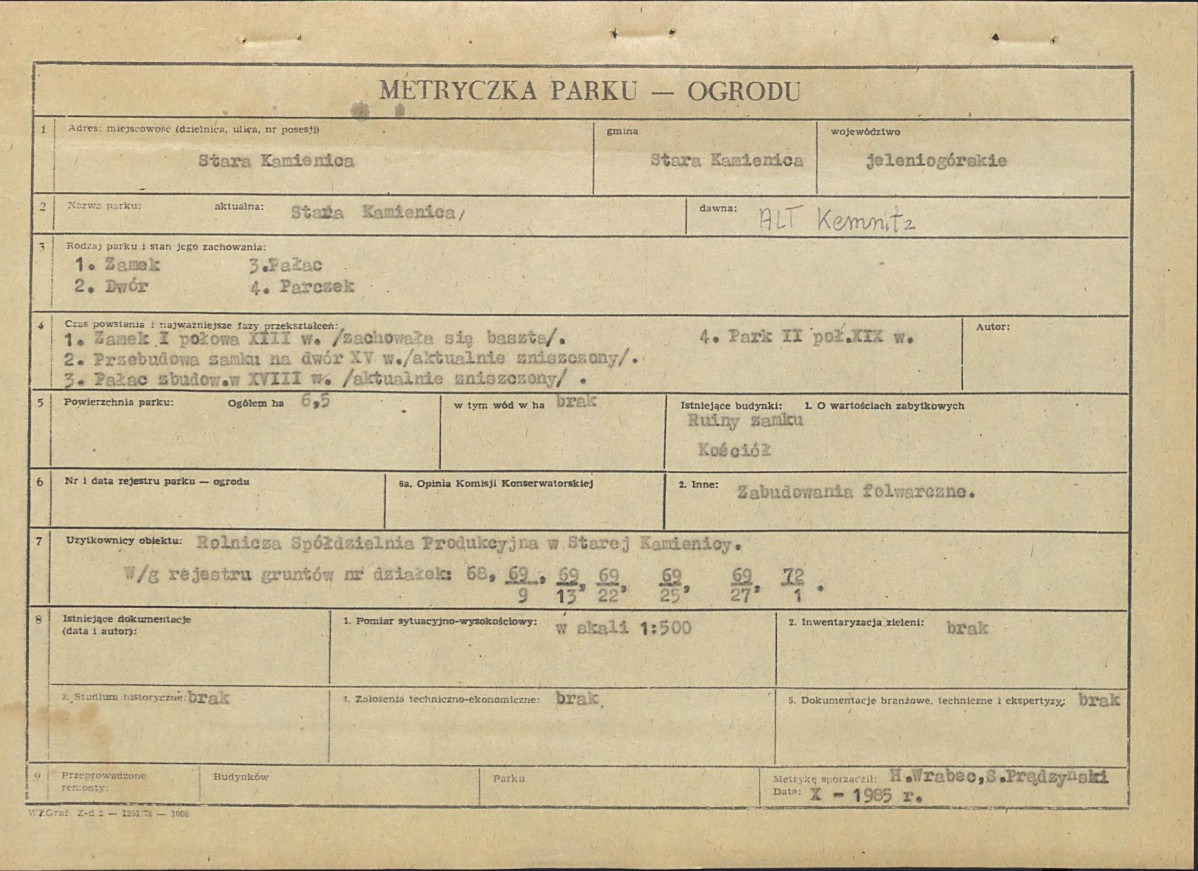 METRYCZKA PARKU — OGRODU
1 Adres: miejscowość (dzielnica, ulica, nr posesji) gmina województwo
Stara Kamienica Stara Kamienica jeleniogórskie
2 Nazwa parku: aktualna: Stara Kamienica, dawna: ALT Kemnitz
3 Rodzaj parku i stan jego zachowania:
1. Zamek 3.Pałac
2. Dwór 4. Parczek
4 Czas powstania i najważniejsze fazy przekształceń: Autor:
1. Zamek I połowa XIII w. /zachowała się baszta/. 4. Park II poł.XIX w.
2. Przebudowa zamku na dwór XV w./aktualnie zniszczony/.
3. Pałac zbudow.w XVIII w. /aktualnie zniszczony/ .
5 Powierzchnia parku: Ogółem ha 6,5 w tym wód w ha brak Istniejące budynki: 1. O wartościach zabytkowych
Ruiny zamku
Kościół
6 Nr i data rejestru parku — ogrodu 6a. Opinia Komisji Konserwatorskiej 2. Inne: Zabudowania folwarczne.
7 Użytkownicy obiektu: Rolnicza Spółdzielnia Produkcyjna w Starej Kamienicy.
W/g rejestru gruntów nr działek: 68, 69/9, 69/13, 69/22, 69/25, 69/27, 72/1 .
8 Istniejące dokumentacje 1. Pomiar sytuacyjno-wysokościowy: w skali 1:500 2. Inwentaryzacja zieleni: brak
(data i autor):
3. Studium historyczne: brak 4. Założenia techniczno-ekonomiczne: brak 5. Dokumentacje branżowe, techniczne i ekspertyzy: brak
9 Przeprowadzone Budynków Parku Metrykę sporządził: H.Wrabec,S.Prądzynski
remonty: Data: X - 1985 r.
WZGraf. Z-d 2 — 1261/78 — 1000